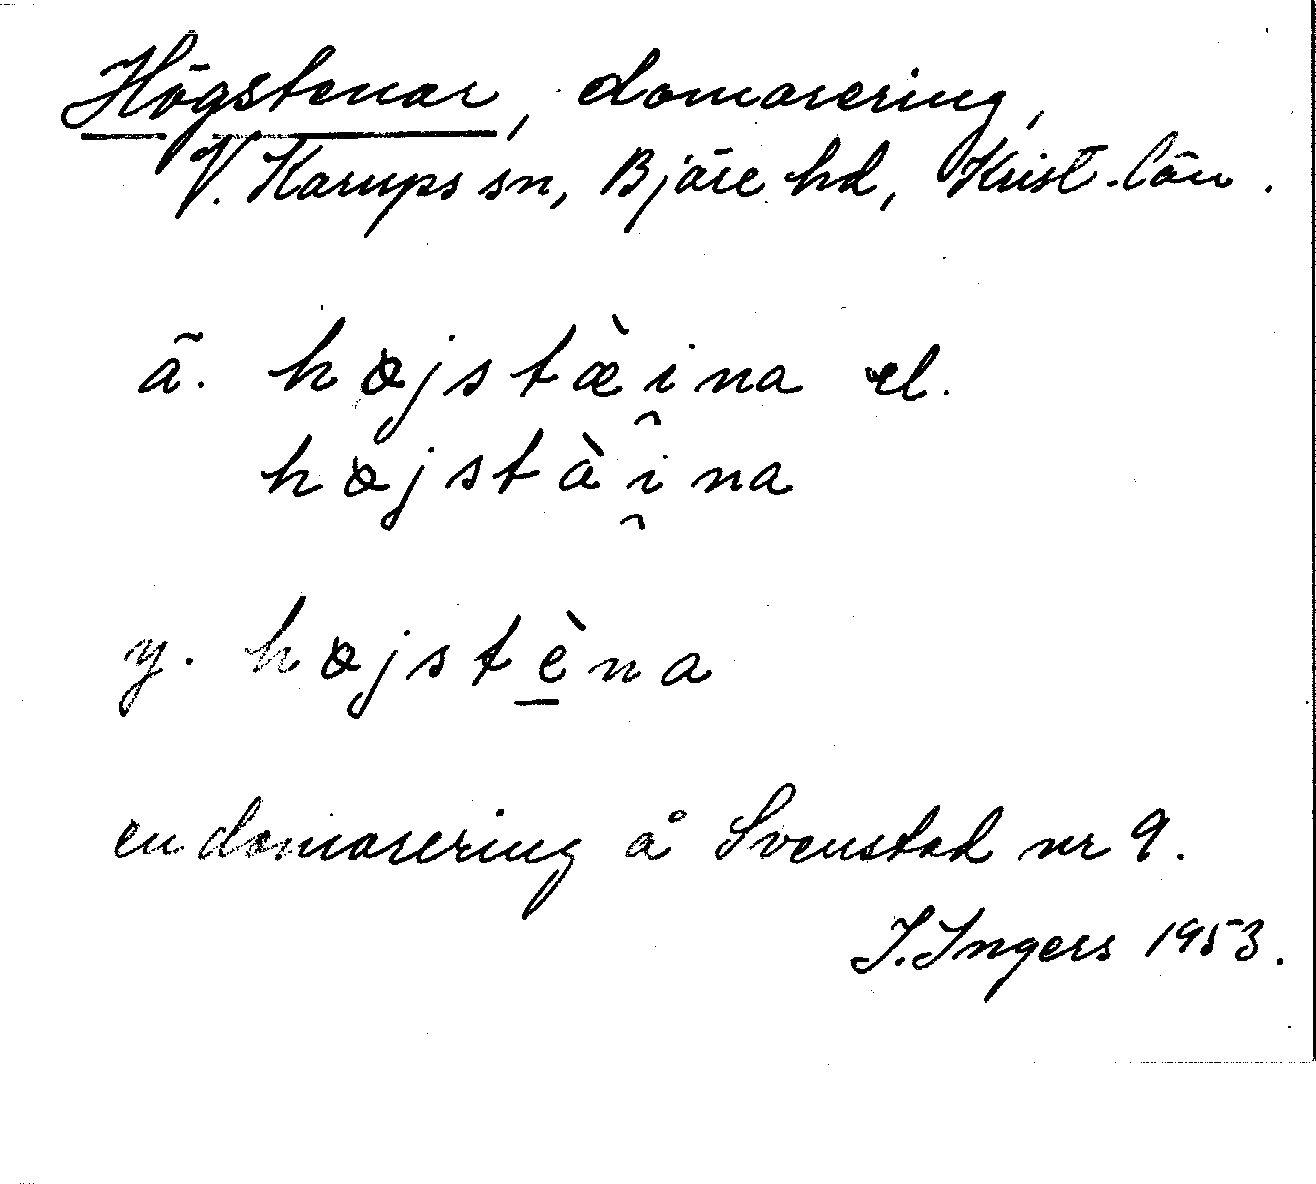 Högstenar, domarering,
V. Karups sn, Bjäre hd, Krist. län.
ä. højstæ̀i̯na el.
højstài̯na
y. højstè̲na
en domarering å Svenstad nr 9.
I. Ingers 1953.